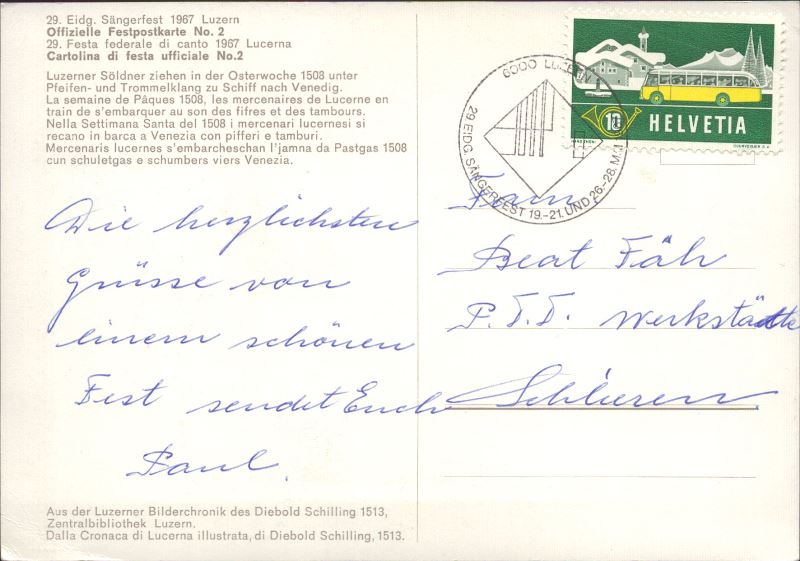 29. Eidg. Sängerfest 1967 Luzern
Offizielle Festpostkarte No. 2
29. Festa federale di canto 1967 Lucerna
Cartolina di festa ufficiale No.2
Luzerner Söldner ziehen in der Osterwoche 1508 unter
Pfeifen- und Trommelklang zu Schiff nach Venedig.
La semaine de Pâques 1508, les mercenaires de Lucerne en
train de s'embarquer au son des fifres et des tambours.
Nella Settimana Santa del 1508 i mercenari lucernesi si
recano in barca a Venezia con pifferi e tamburi.
Mercenaris lucernes s'embarcheschan l'jamna da Pastgas 1508
cun schuletgas e schumbers viers Venezia.
Die herzlichsten
Grüsse von
einem schönen
Fest sendet Euch
Paul.
Aus der Luzerner Bilderchronik des Diebold Schilling 1513,
Zentralbibliothek Luzern.
Dalla Cronaca di Lucerna illustrata, di Diebold Schilling, 1513.
6000 LUZERN
29. EIDG. SÄNGERFEST 19.-21. UND 26.-28. MAI
10 HELVETIA
COURVOISIER S.A.
Beat Fäh
P.T.T. Werkstädte
Schlieren